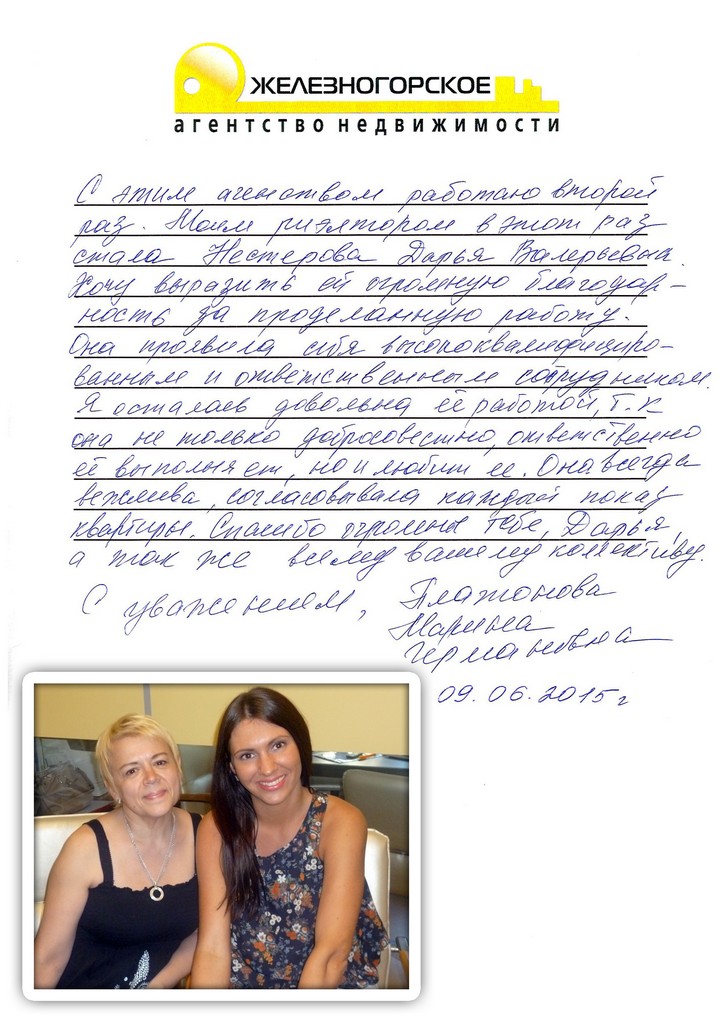 ЖЕЛЕЗНОГОРСКОЕ
агентство недвижимости
С этим агенством работаю второй
раз. Моим риэлтором в этот раз
стала Нестерова Дарья Валерьевна.
Хочу выразить ей огромную благодар-
ность за проделанную работу.
Она проявила себя высококвалифициро-
ванным и ответственным сотрудником.
Я осталась довольна её работой, т.к
она не только добросовестно, ответственно
её выполняет, но и любит ее. Она всегда
вежлива, согласовывала каждый показ
квартиры. Спасибо огромное тебе, Дарья,
а так же всему вашему коллективу.
С уважением, Платонова
Марина
Германовна
09.06.2015г